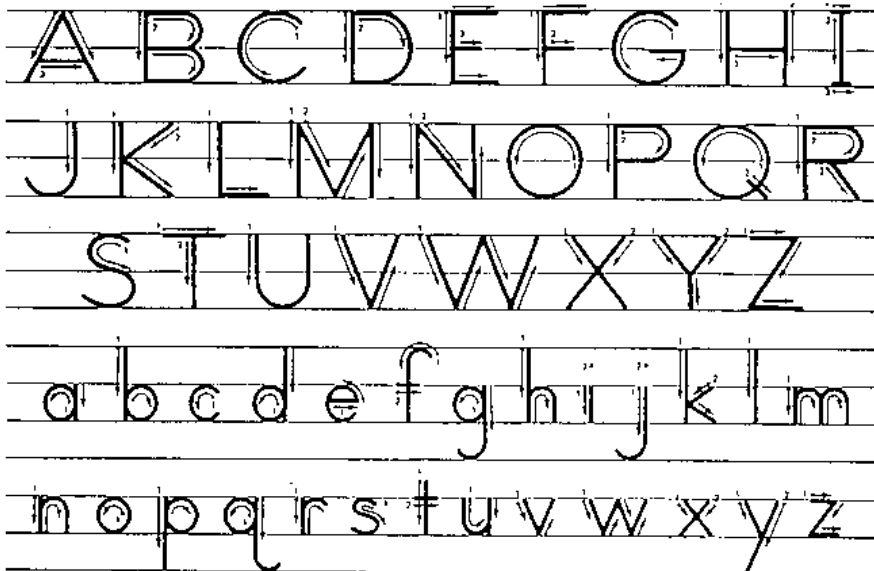 A B C D E F G H I
J K L M N O P Q R
S T U V W X Y Z
a b c d e f g h i j k l m
n o p q r s t u v w x y z